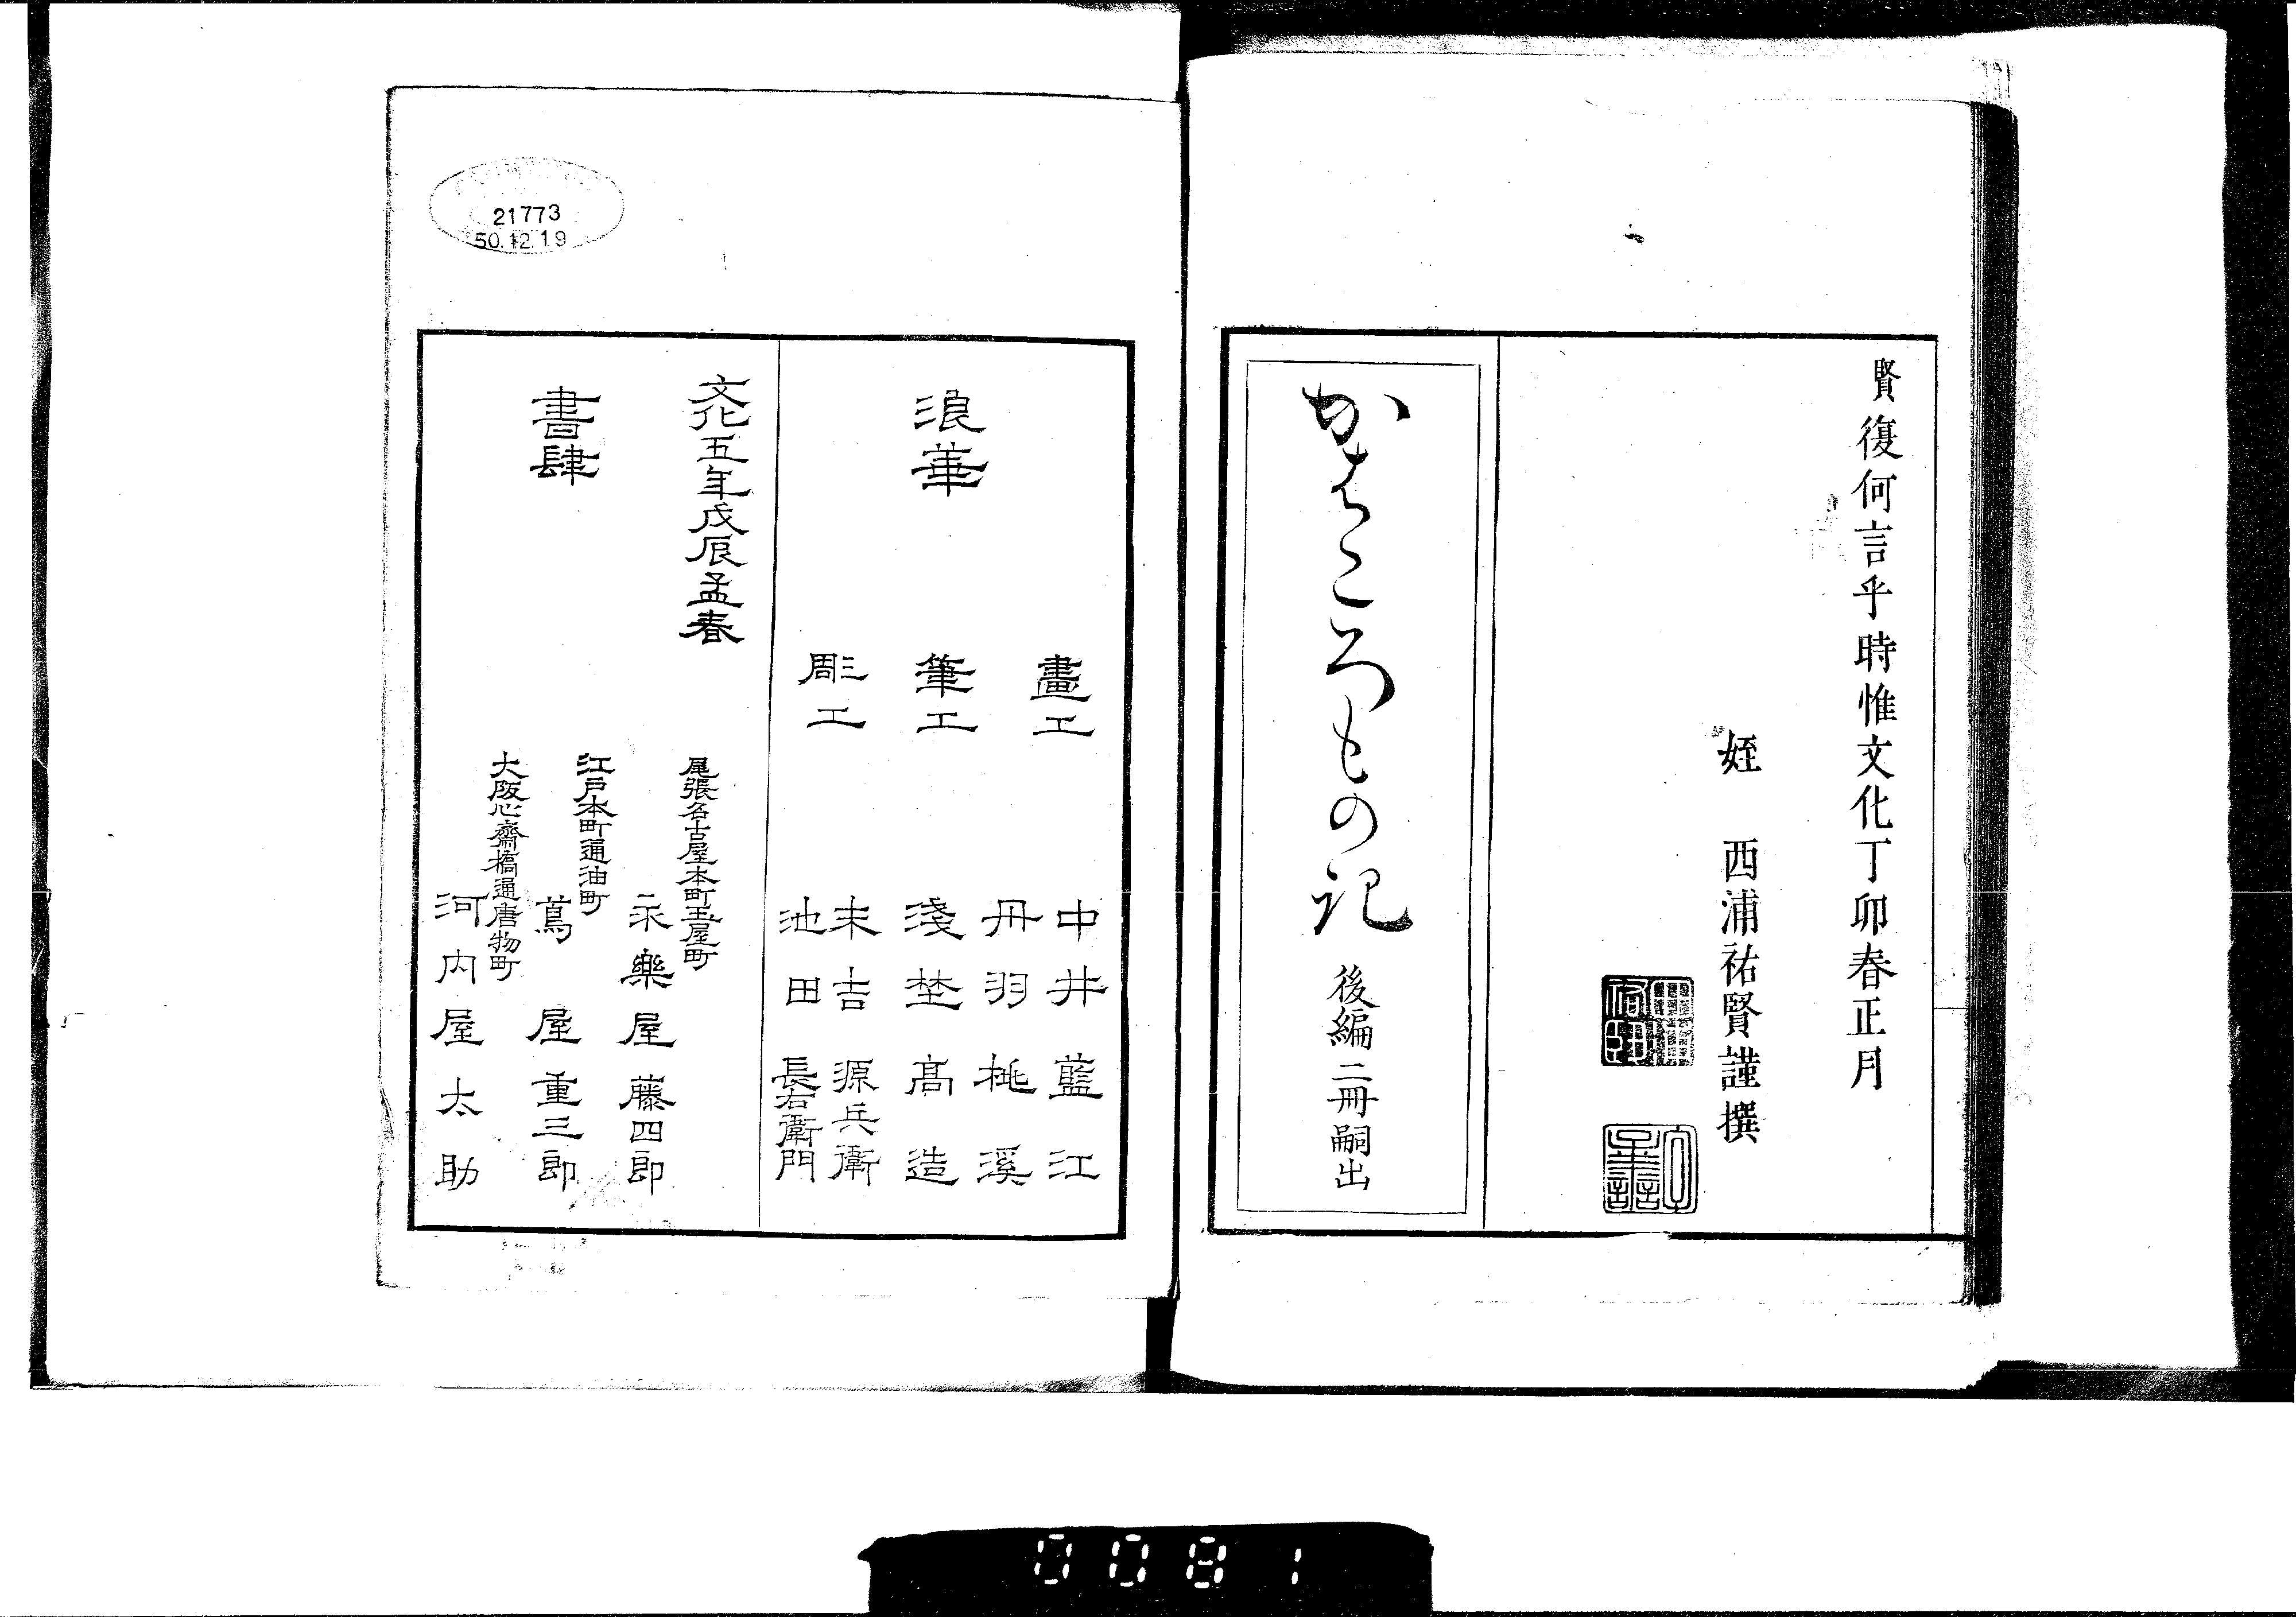 賢復何言乎時惟文化丁卯春正月
姪　西浦祐賢謹撰
かはころもの記　後編二冊嗣出
浪華
畫工　中井藍江
丹羽桃溪
筆工　淺埜高造
彫工　末吉源兵衛
池田長右衛門
文化五年戊辰孟春
書肆
尾張名古屋本町玉屋町
永樂屋藤四郎
江戸本町通油町
蔦屋重三郎
大阪心齋橋通唐物町
河内屋太助
21773
50.12.19
0081